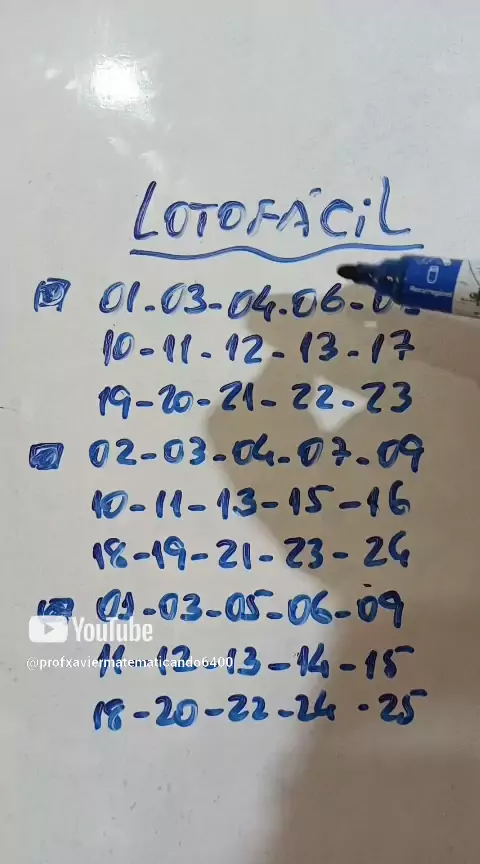 LOTOFÁCIL
01-03-04.06-0
10-11-12-13-17
19-20-21-22-23
02-03-04-07-09
10-11-13-15-16
18-19-21-23-24
01-03-05-06-09
YouTube
@profxaviermatematicando6400
11-12-13-14-15
18-20-22-24-25